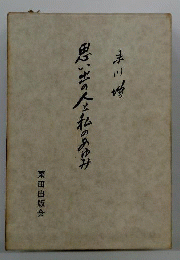 末川博
思い出の人と私のあゆみ
栗田出版会